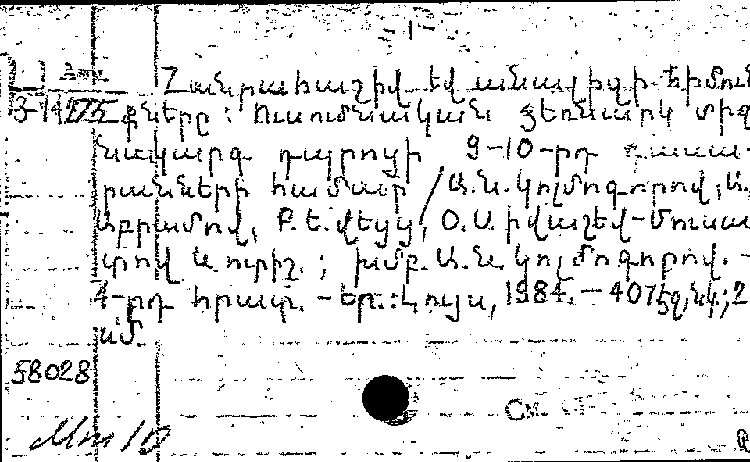 -1-
Հանրահաշիվ եվ անալիզի հիմուն
քները: Ուսումնական ձեռնարկ միջ
նակարգ դպրոցի 9-10-րդ դասա-
րանների համար / Ա.Ն. Կոլմոգորով, Ա.
Աբրամով, Բ.Ե. Վեյց, Օ.Ս. Իվաշեվ-Մուսա
տով և ուրիշ.; խմբ. Ա.Ն. Կոլմոգորով. -
4-րդ հրատ. - Եր.: Լույս, 1984. - 407 էջ, նկ.; 2
սմ.
58028
См.